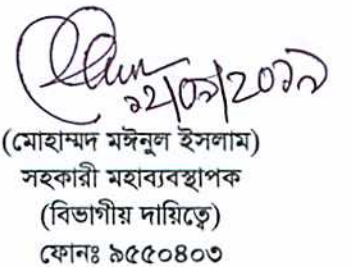 ১২/০৯/২০১৯
(মোহাম্মদ মঈনুল ইসলাম)
সহকারী মহাব্যবস্থাপক
(বিভাগীয় দায়িত্বে)
ফোনঃ ৯৫৫০৪০৩